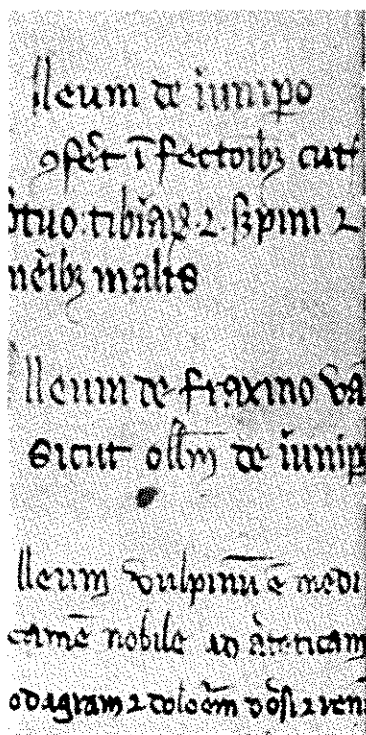 lleum de iunipo
ꝯfert ī fectoibꝫ cut
tuo tibiaꝝ ⁊ serpini ⁊
mēibꝫ malis
lleum de fraxino va
sicut ollm̄ de iunip
lleum vulpinū ē medi
camē nobile ad arteticam
odagram ⁊ dolorem